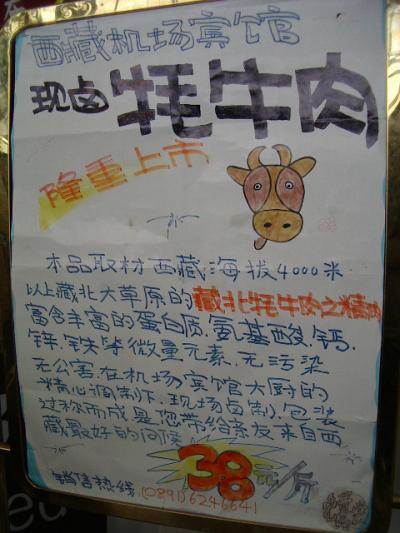 西藏机场宾馆
现卤牦牛肉
隆重上市
本品取材西藏海拔4000米
以上藏北大草原的藏北牦牛肉之精肉
富含丰富的蛋白质.氨基酸.钙.
锌.铁等微量元素.无污染
无公害.在机场宾馆大厨的
精心调制下.现场卤制.包装
过称而成是您带给亲友来自西
藏最好的问候
38元/斤
销售热线:(0891)6246641
eu